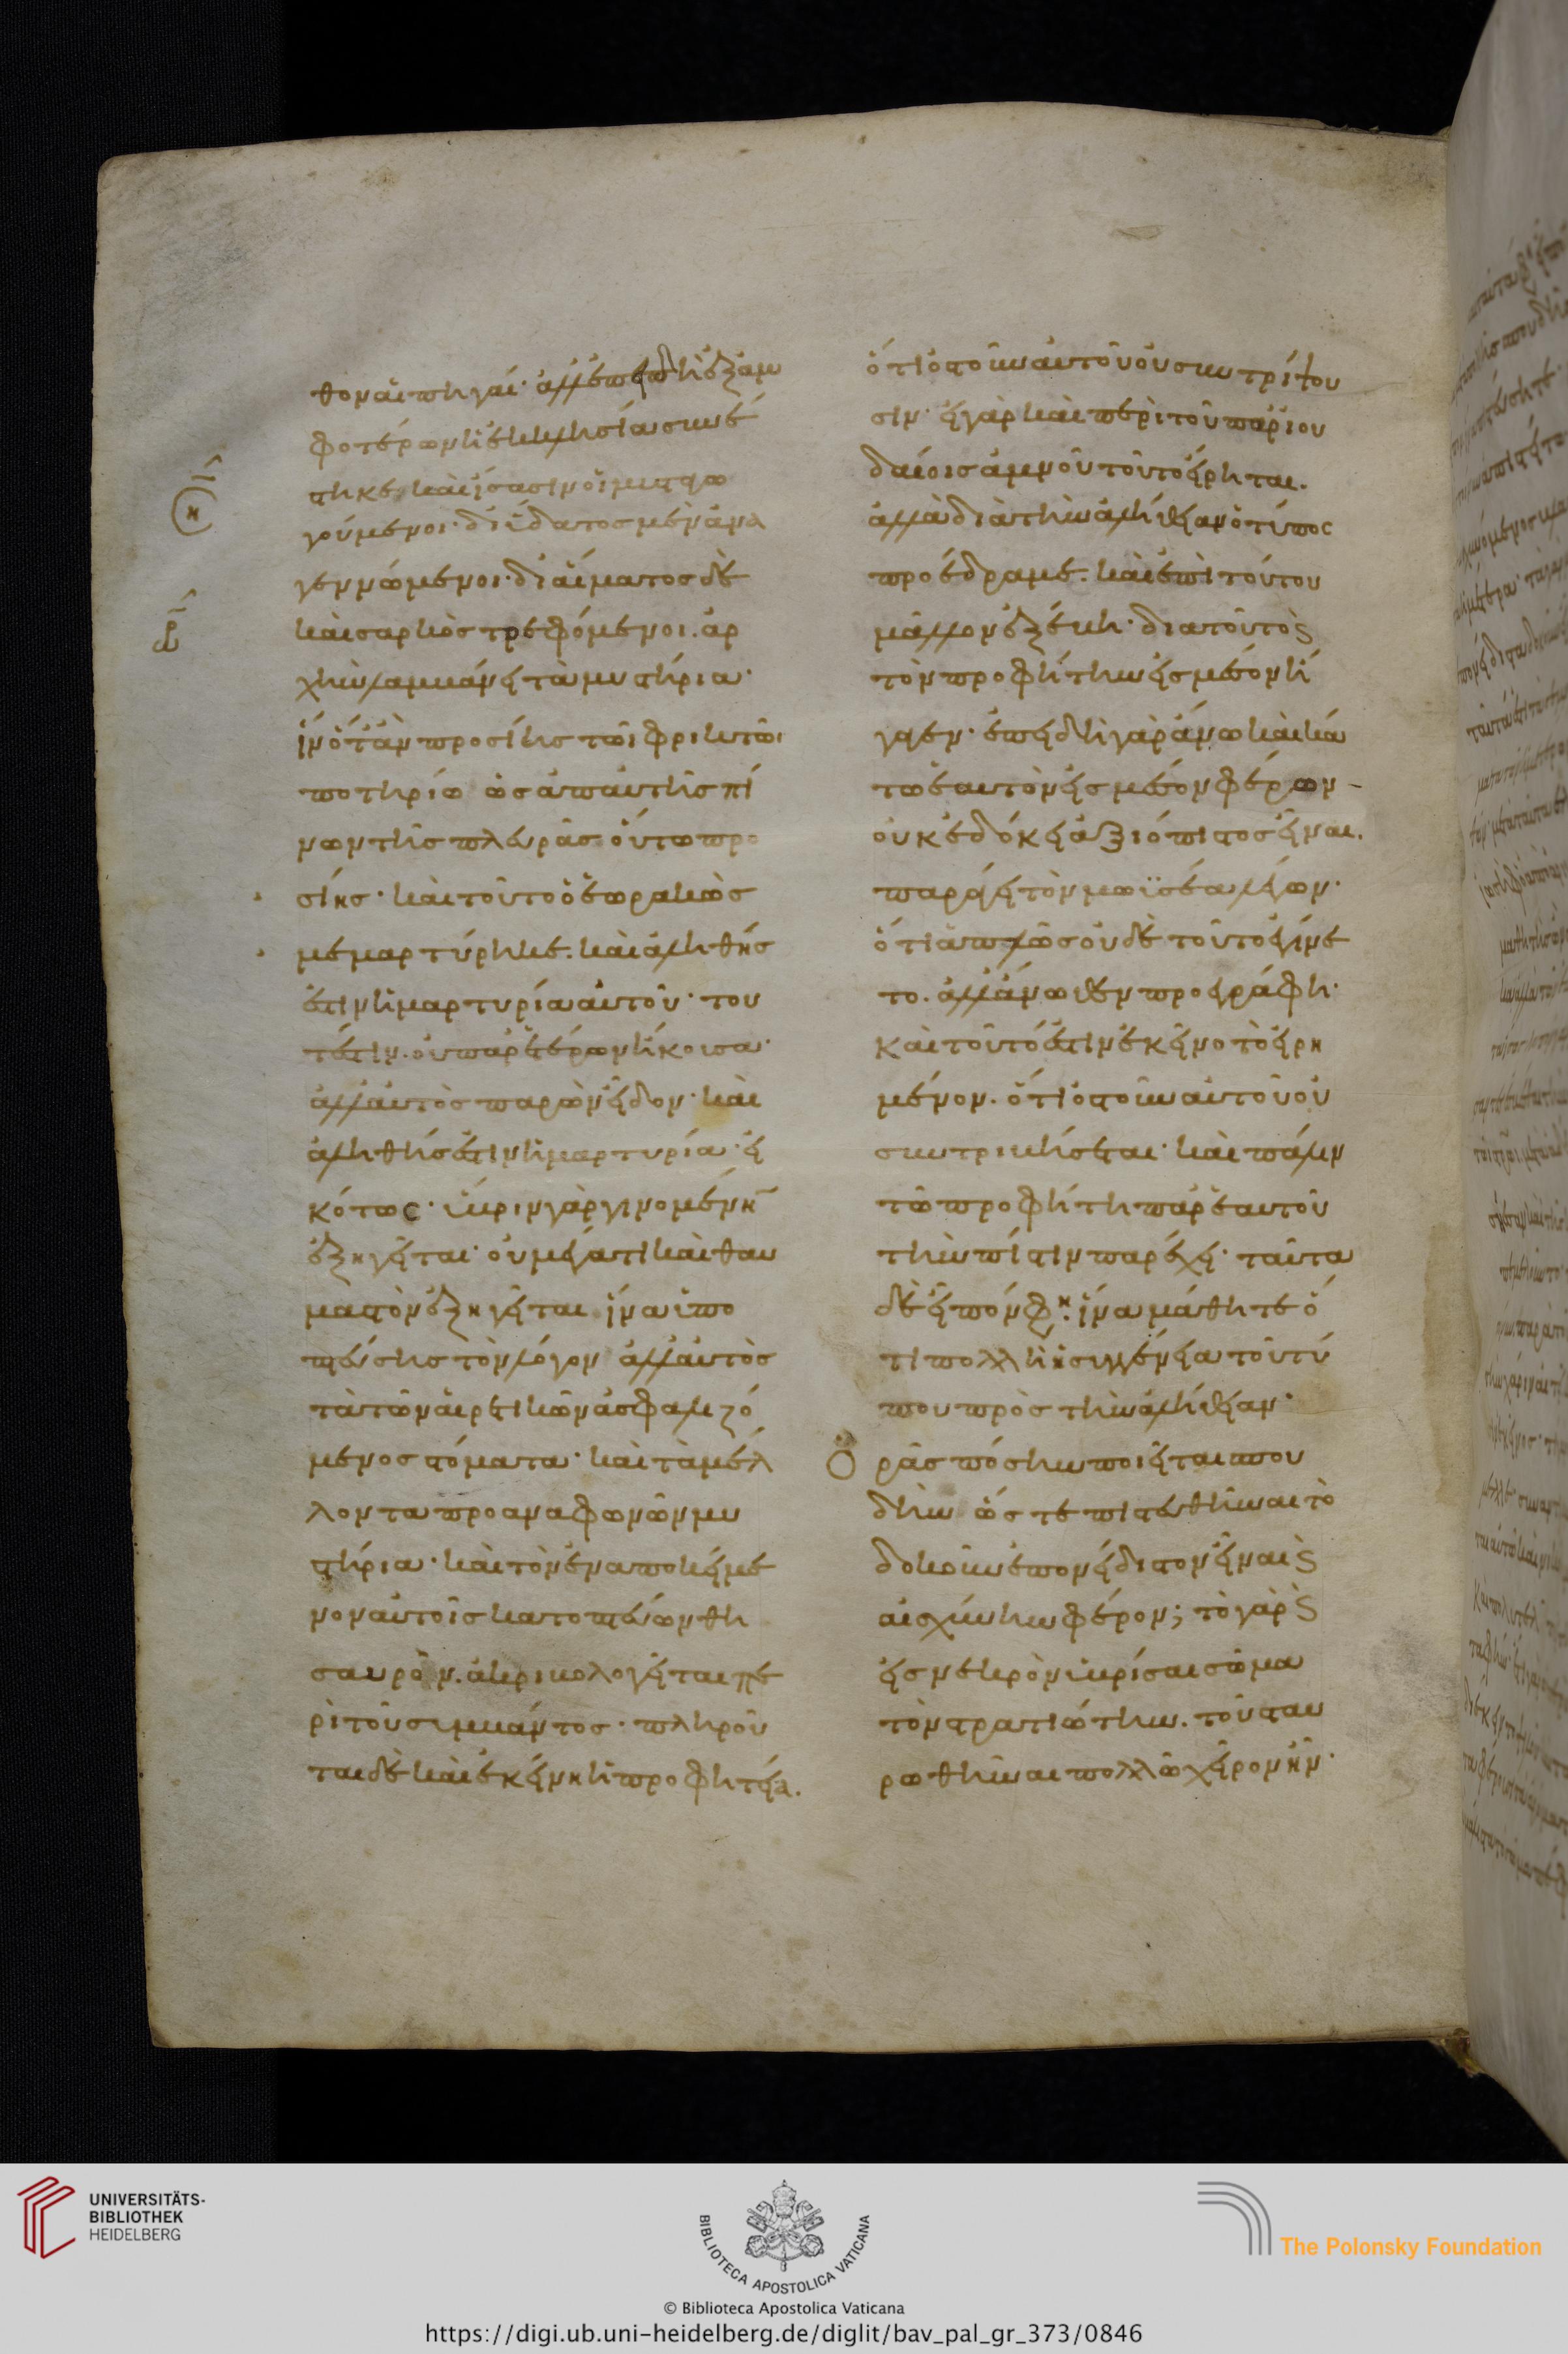 θον αἱ πηγαί· ἀλλ' ἐπειδὴ ἐξ ἀμ
φοτέρων ἡ ἐκκλησία συνέ
στηκε· καὶ ἴσασιν οἱ μυσταγω
γούμενοι· δι' ὕδατος μὲν ἀνα
γεννώμενοι· δι' αἵματος δὲ
καὶ σαρκὸς τρεφόμενοι. ἀρ
χὴν λαμβάνει τὰ μυστήρια·
ἵν' ὅταν προσίῃς τῶι φρικτῶι
ποτηρίω ὡς ἀπ' αὐτῆς πί
νων τῆς πλευρᾶς οὕτω προ
σίης· καὶ τοῦτο ὁ ἑωρακὼς
μεμαρτύρηκε. καὶ ἀληθής
ἐστιν ἡ μαρτυρία αὐτοῦ· του
τέστιν. οὐ παρ' ἑτέρων ἤκουσα·
ἀλλ' αὐτὸς παρὼν εἶδον· καὶ
ἀληθής ἐστιν ἡ μαρτυρία· εἰ
κότως· ὕβριν γὰρ γινομένην
ἐξηγεῖται· οὐ μέγα τι καὶ θαυ
μαστὸν ἐξηγεῖται ἵνα ὑπο
πτεύσης τὸν λόγον ἀλλ' αὐτὸς
τὰ τῶν αἱρετικῶν ἀσφαλιζό
μενος στόματα· καὶ τὰ μέλ
λοντα προαναφωνῶν μυ
στήρια· καὶ τὸν ἐναποκείμε
νον αὐτοῖς κατοπτεύων θη
σαυρόν. ἀκριβολογεῖται πε
ρὶ τοῦ συμβάντος· πληροῦ
ται δὲ καὶ ἐκείνη ἡ προφητεία.
ὅτι ὀστοῦν αὐτοῦ οὐ συντρίψου
σιν· εἰ γὰρ καὶ περὶ τοῦ παρ' ἰου
δαίοις ἀμνοῦ τοῦτο εἴρηται.
ἀλλὰ διὰ τὴν ἀλήθειαν ὁ τύπος
προέδραμε. καὶ ἐπὶ τούτου
μᾶλλον ἐξέβη· διατοῦτο καὶ
τὸν προφήτην εἰς μέσον ἤ
γαγεν· ἐπειδὴ γὰρ ἄνω καὶ κά
τω ἑαυτὸν εἰς μέσον φέρων
οὐκ ἐδόκει ἀξιόπιστος εἶναι.
παράγει τὸν μωϊσέα λέγων·
ὅτι ἁπλῶς οὐδὲ τοῦτο ἐγίνε
το. ἀλλ' ἄνωθεν προεγράφη·
καὶ τοῦτό ἐστιν ἐκεῖνο τὸ εἰρη
μένον. ὅτι ὀστοῦν αὐτοῦ οὐ
συντριβήσεται· καὶ πάλιν
τῶ προφήτη παρ' ἑαυτοῦ
τὴν πίστιν παρέχει· ταῦτα
δὲ εἶπον φη. ἵνα μάθητε ὅ
τι πολλὴ ἡ συγγένεια τοῦ τύ
που πρὸς τὴν ἀλήθειαν·
Ὁρᾶς πόσην ποιεῖται σπου
δὴν ὥστε πιστευθῆναι τὸ
δοκοῦν ἐπονείδιστον εἶναι καὶ
αἰσχύνην φέρον; τὸ γὰρ καὶ
εἰς νεκρὸν ὑβρίσαι σῶμα
τὸν στρατιώτην. τοῦ σταυ
ρωθῆναι πολλῶ χεῖρον ἦν·
UNIVERSITÄTS-
BIBLIOTHEK
HEIDELBERG
BIBLIOTECA APOSTOLICA VATICANA
The Polonsky Foundation
© Biblioteca Apostolica Vaticana
https://digi.ub.uni-heidelberg.de/diglit/bav_pal_gr_373/0846